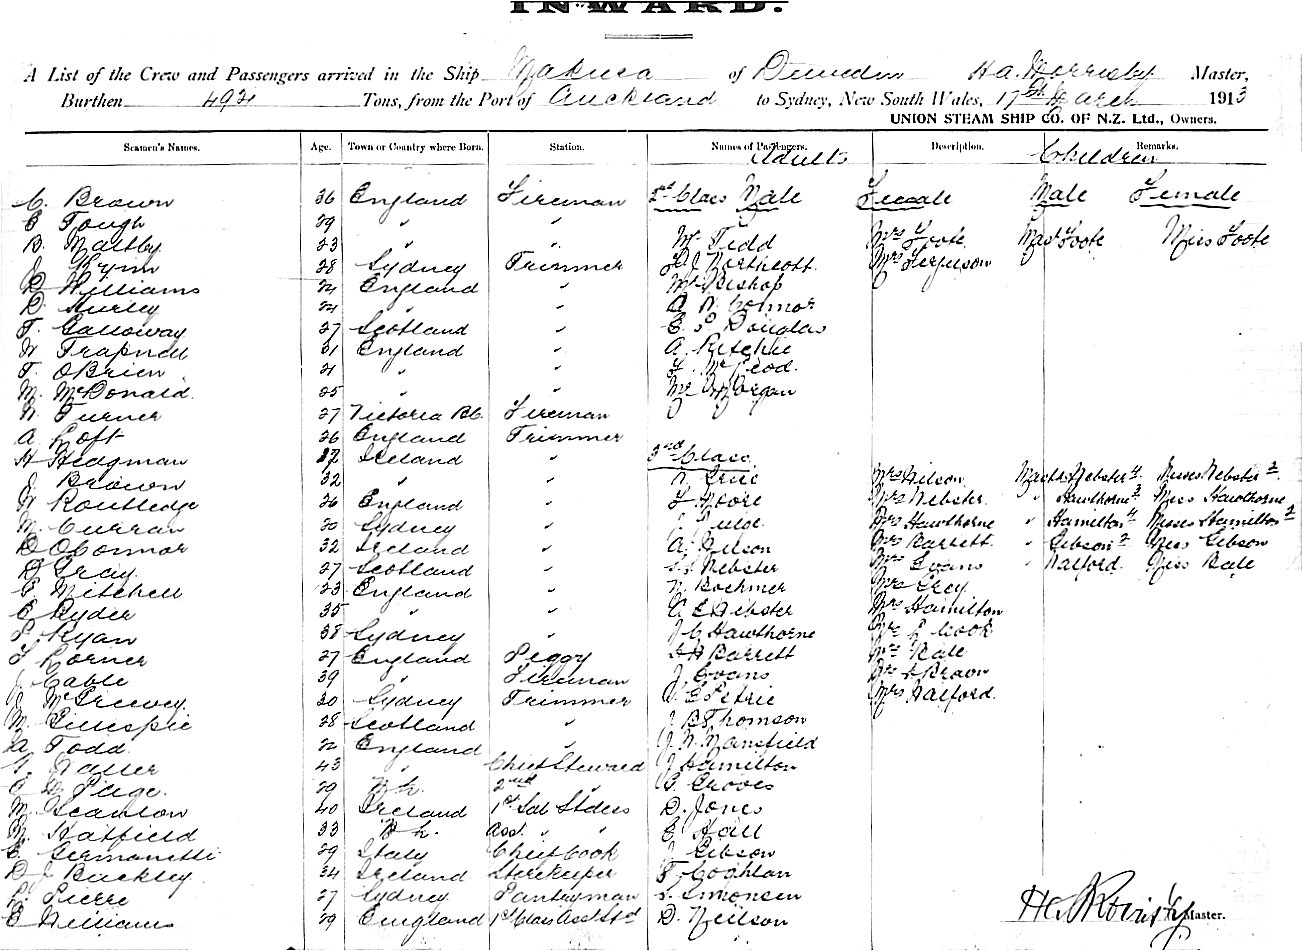 INWARD.
A List of the Crew and Passengers arrived in the Ship Makura of Dunedin H.A. Master,
Burthen 4921 Tons, from the Port of Auckland to Sydney, New South Wales, 17th March 1913
UNION STEAM SHIP CO. OF N.Z. Ltd., Owners.
Seamen's Names. Age. Town or Country where Born. Station. Names of Passengers. Description. Remarks.
Adults Children
C. Brown 36 England Fireman 2nd Class Male Female Male Female
E Tough 29 " "
B. Maltby 23 " " Mr Tedd Mrs Foote Mast Foote Miss Foote
J Wynn 28 Sydney Trimmer L J Northcott Mrs Ferguson
D Williams 24 England " Mr Bishop
D. Hurley 24 " "
T. Galloway 27 Scotland " E. S Douglas
W Trapnell 31 England " A Ritchie
T. OBrien 21 " " McLeod
M. McDonald. 25 " " Mr Morgan
W. Turner 27 Victoria B.C. Fireman
A Loft 26 England Trimmer
H Hedgman Ireland " 3rd Class
Brown 32 " " Mrs Wilson Masters Webster 4 Misses Webster 2
W Routledge 26 England " Moore Mrs Webster " Hawthorne 3 Miss Hawthorne
M. Curran 20 Sydney " Mrs Hawthorne " Hamilton 4 Misses Hamilton 2
D OConnor 32 Ireland " A. Wilson Mrs Barrett " Gibson 2 Miss Gibson
D Gray 27 Scotland " Webster Mrs Evans " Halford. Miss Bale
E Mitchell 23 England " Boehmer Mrs Grey
E Ryder 35 " " Webster Mrs Hamilton
P. Ryan 38 Sydney " J C Hawthorne Mrs L Cook
Corner 27 England Peggy Barrett Mrs Bale
J Cable 39 " Fireman J. Evans Mrs Brown
McGreevey 30 Sydney Trimmer Petrie Mrs Halford.
M. Gillespie 28 Scotland " J B Thomson
A Todd 22 England " J. W. Mansfield
Waller 43 " Chief Steward J Hamilton
Page. 29 N.Z. 2nd " Groves
M. Scanlon 40 Ireland 1st Sal Stdess D. Jones
Hatfield 33 Asst. " " E Hall
29 Italy Chief Cook J Gibson
D J Buckley 34 Ireland Storekeeper Coghlan
Pierre 27 Sydney Pantryman Simonsen
E Williams 29 England 1st Class Asst Std D. Neilson
Master.